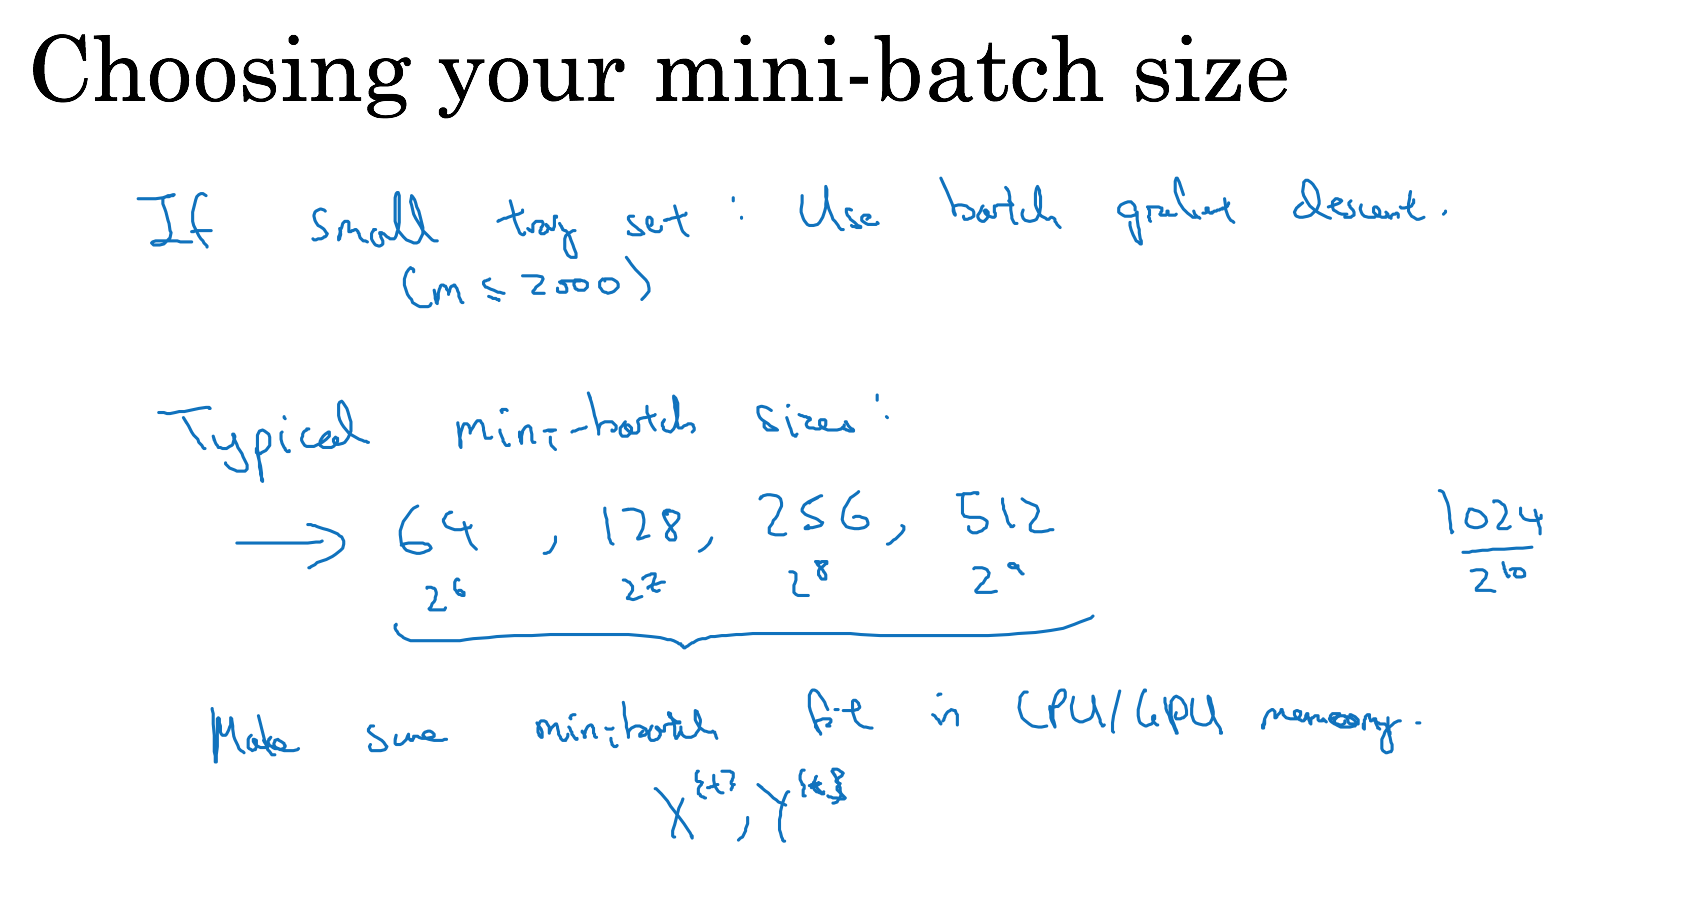 Choosing your mini-batch size
If small tray set : Use batch gradient descent.
(m ≤ 2000)
Typical mini-batch sizes :
→ 64 , 128, 256, 512 1024
2^6 2^7 2^8 2^9 2^10
Make sure mini-batch fit in CPU/GPU memory.
X^{t}, Y^{t}